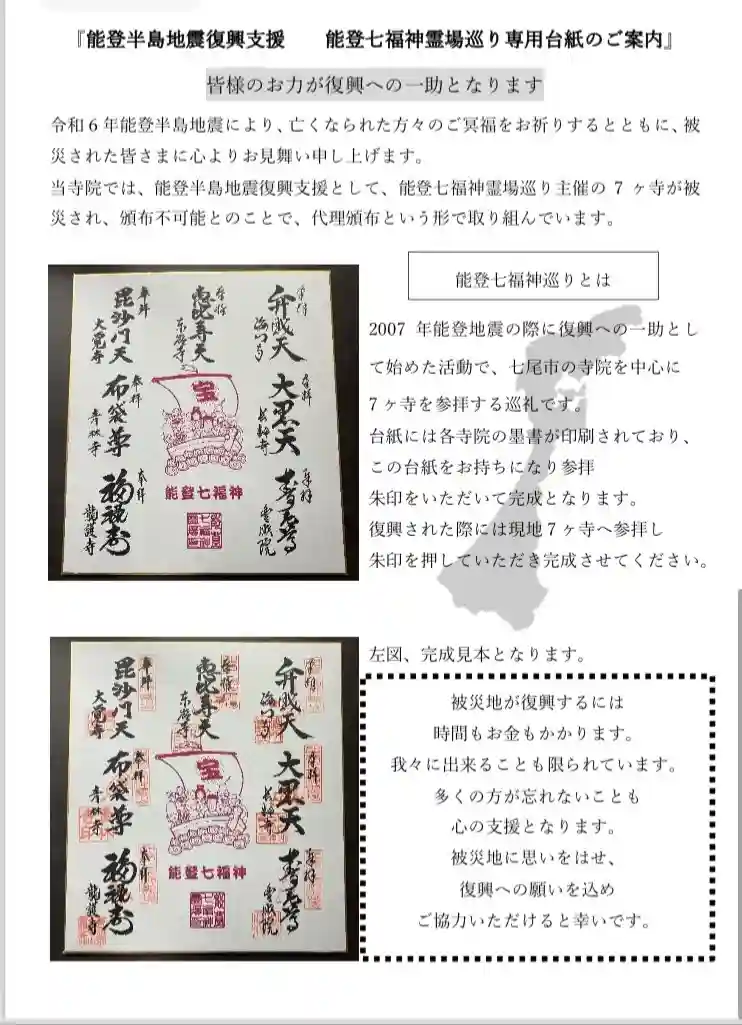 『能登半島地震復興支援　　能登七福神霊場巡り専用台紙のご案内』
皆様のお力が復興への一助となります
令和6年能登半島地震により、亡くなられた方々のご冥福をお祈りするとともに、被
災された皆さまに心よりお見舞い申し上げます。
当寺院では、能登半島地震復興支援として、能登七福神霊場巡り主催の 7 ヶ寺が被
災され、頒布不可能とのことで、代理頒布という形で取り組んでいます。
奉拝
弁財天
海門寺
奉拝
恵比寿天
奉拝
毘沙門天
大覚寺
奉拝
大黒天
長齢寺
宝
奉拝
布袋尊
奉拝
寿老尊
霊泉院
能登七福神
奉拝
福禄寿
龍護寺
能登七福神巡りとは
2007 年能登地震の際に復興への一助とし
て始めた活動で、七尾市の寺院を中心に
7ヶ寺を参拝する巡礼です。
台紙には各寺院の墨書が印刷されており、
この台紙をお持ちになり参拝
朱印をいただいて完成となります。
復興された際には現地7ヶ寺へ参拝し
朱印を押していただき完成させてください。
奉拝
弁財天
海門寺
奉拝
恵比寿天
奉拝
毘沙門天
大覚寺
奉拝
大黒天
長齢寺
宝
奉拝
布袋尊
奉拝
寿老尊
霊泉院
能登七福神
奉拝
福禄寿
龍護寺
左図、完成見本となります。
被災地が復興するには
時間もお金もかかります。
我々に出来ることも限られています。
多くの方が忘れないことも
心の支援となります。
被災地に思いをはせ、
復興への願いを込め
ご協力いただけると幸いです。